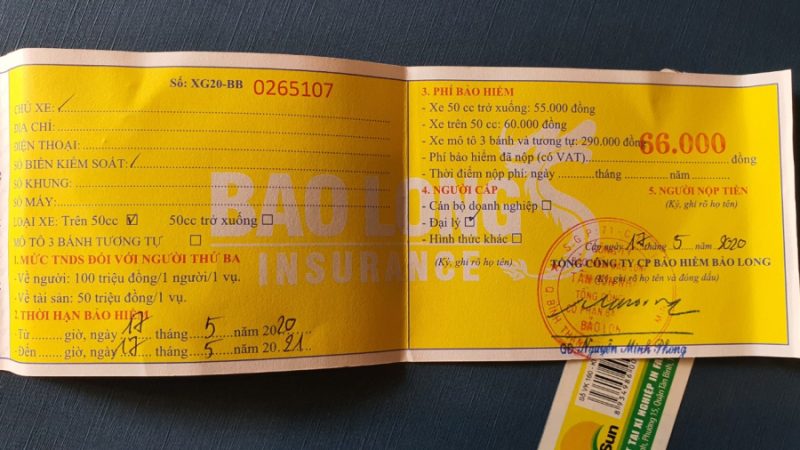 Số: XG20-BB 0265107
CHỦ XE:
ĐỊA CHỈ:
ĐIỆN THOẠI:
SỐ BIỂN KIỂM SOÁT:
SỐ KHUNG:
SỐ MÁY:
LOẠI XE: Trên 50cc 50cc trở xuống:
MÔ TÔ 3 BÁNH TƯƠNG TỰ
1.MỨC TNDS ĐỐI VỚI NGƯỜI THỨ BA
- Về người: 100 triệu đồng/1 người/1 vụ.
- Về tài sản: 50 triệu đồng/1 vụ.
2.THỜI HẠN BẢO HIỂM
-Từ........ giờ, ngày 17 tháng 5 năm 2020
-Đến ....... giờ, ngày 17 tháng 5 năm 20.21
BAO LONG
INSURANCE
3. PHÍ BẢO HIỂM
- Xe 50 cc trở xuống: 55.000 đồng
- Xe trên 50 cc: 60.000 đồng
- Xe mô tô 3 bánh và tương tự: 290.000 đồng
- Phí bảo hiểm đã nộp (có VAT) 66.000 đồng
- Thời điểm nộp phí: ngày tháng năm
4. NGƯỜI CẤP
- Cán bộ doanh nghiệp
- Đại lý
- Hình thức khác
(Ký, ghi rõ họ tên)
5. NGƯỜI NỘP TIỀN
(Ký, ghi rõ họ tên)
Cấp ngày 17 tháng 5 năm 2020
TỔNG CÔNG TY CP BẢO HIỂM BẢO LONG
(Ký, ghi rõ họ tên và đóng dấu)
BẢO LONG
GĐ. Nguyễn Minh Phong
Sun
TẠI XÍ NGHIỆP IN
Phường 15, Quận Tân Bình